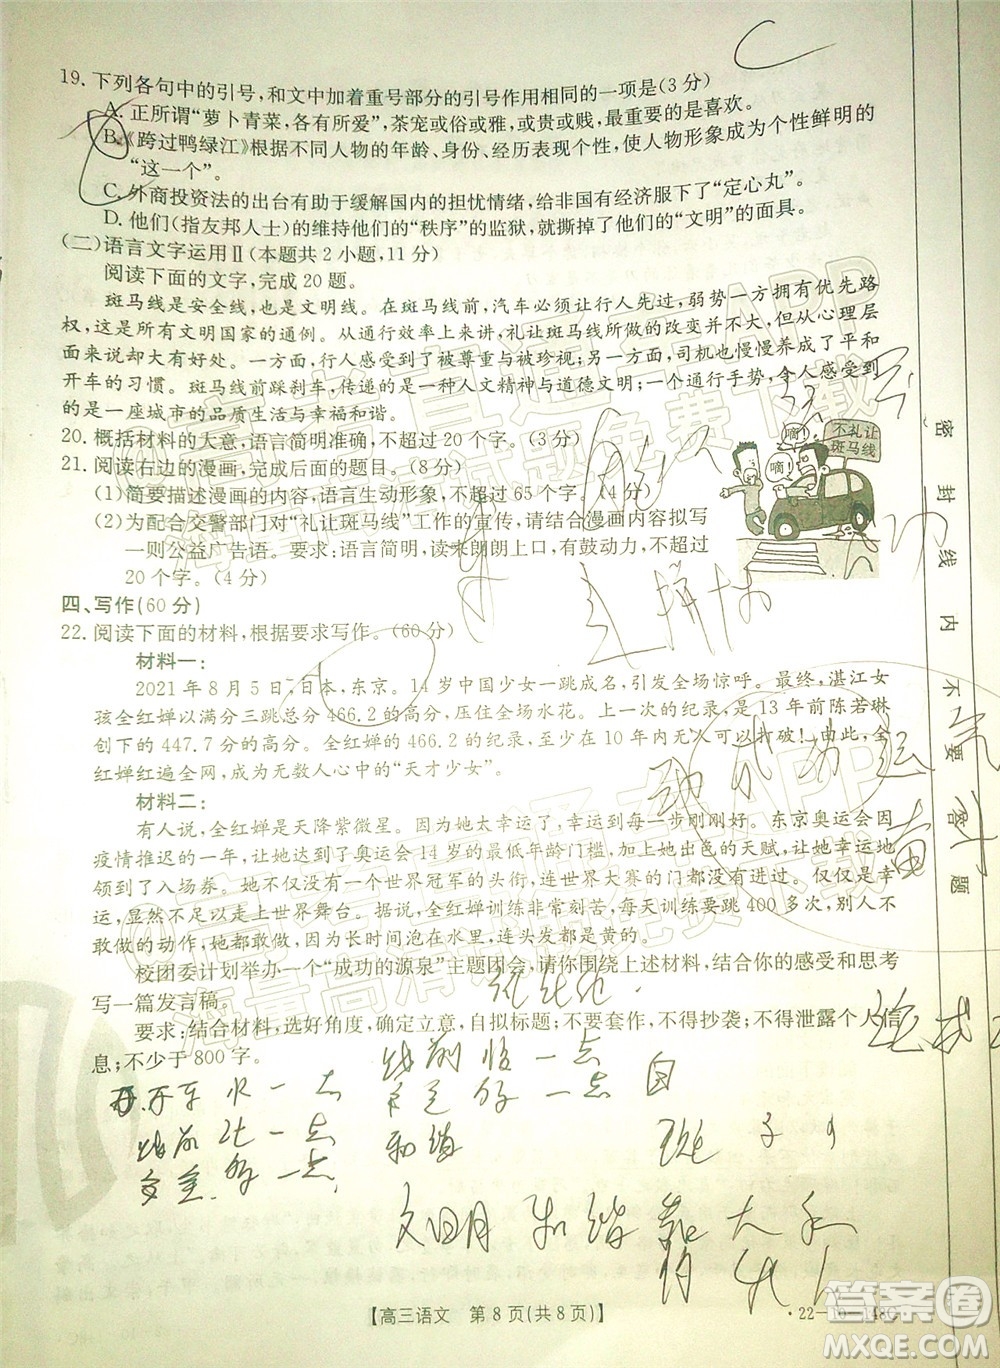 19. 下列各句中的引号,和文中加着重号部分的引号作用相同的一项是(3分)
A. 正所谓“萝卜青菜,各有所爱”,茶宠或俗或雅,或贵或贱,最重要的是喜欢。
B.《跨过鸭绿江》根据不同人物的年龄、身份、经历表现个性,使人物形象成为个性鲜明的
“这一个”。
C. 外商投资法的出台有助于缓解国内的担忧情绪,给非国有经济服下了“定心丸”。
D. 他们(指友邦人士)的维持他们的“秩序”的监狱,就撕掉了他们的“文明”的面具。
(二)语言文字运用Ⅱ(本题共2小题,11分)
阅读下面的文字,完成20题。
斑马线是安全线,也是文明线。在斑马线前,汽车必须让行人先过,弱势一方拥有优先路
权,这是所有文明国家的通例。从通行效率上来讲,礼让斑马线所做的改变并不大,但在心理层
面来说却大有好处。一方面,行人感受到了被尊重与被珍视;另一方面,司机也慢慢养成了平和
开车的习惯。斑马线前踩刹车,传递的是一种人文精神与道德文明;一个通行手势,令人感受到
的是一座城市的品质生活与幸福和谐。
20. 概括材料的大意,语言简明准确,不超过20个字。(3分)
21. 阅读右边的漫画,完成后面的题目。(8分)
(1)简要描述漫画的内容,语言生动形象,不超过65个字。(4分)
(2)为配合交警部门对“礼让斑马线”工作的宣传,请结合漫画内容拟写
一则公益广告语。要求:语言简明,读来朗朗上口,有鼓动力,不超过
20个字。(4分)
嘀!
嘀!
不礼让
斑马线
四、写作(60分)
22. 阅读下面的材料,根据要求写作。(60分)
材料一:
2021年8月5日,日本,东京。14岁中国少女一跳成名,引发全场惊呼。没错,湛江女
孩全红婵以满分三跳总分466.2的高分,压住全场水花。上一次的纪录,是13年前陈若琳
创下的447.7分的高分。全红婵的466.2的纪录,至少是10年内无人可以打破!由此,全
红婵红遍全网,成为无数人心中的“天才少女”。
材料二:
有人说,全红婵是天降紫微星。因为她太幸运了,幸运到每一步刚刚好。东京奥运会因
疫情推迟的一年,让她踏到奥运会14岁的最低年龄门槛,加上她出色的天赋,让她幸运地
得到了入场券。她不仅没有一个世界冠军的头衔,连世界大赛的门都没有摸过。但这种幸
运,显然不足以走上世界舞台。据说,全红婵训练非常刻苦,每天训练要跳400多次,男生不
敢做的动作,她都敢做。因为长时间泡在水里,连头发都是黄的。
校团委计划举办一个“成功的源泉”主题团会,请你围绕上述材料,结合你的感受和思考
写一篇发言稿。
要求:结合材料,选好角度,确定立意,自拟标题;不要套作,不得抄袭;不得泄露个人信
息;不少于800字。
线前 一点
一点
和谐
开车 一点
线前 一点
安全 一点
文明 和谐 靠大
密封线内不要答题
【高三语文 第8页(共8页)】
·22-10-148C·
@高考直通车APP
海量高清试题免费下载
@高考直通车APP
海量高清试题免费下载
答案圈
MXQE.COM